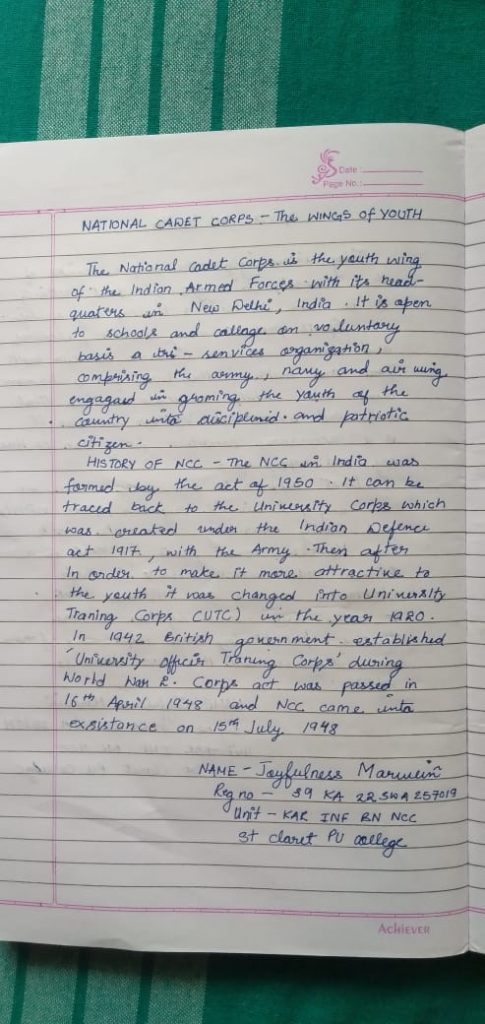 Date :
Page No.:
NATIONAL CADET CORPS - The WINGS of YOUTH
The National Cadet Corps is the youth wing
of the Indian Armed Forces with its head-
quaters in New Delhi, India. It is open
to schools and callage on voluntary
basis a tri-services organization,
comprising the army, navy and air wing,
engagaid in groming the youth of the
country into disciplenid. and patriotic
citizen.
HISTORY OF NCC - The NCC in India was
farmed by the act of 1950. It can be
traced back to the University Corps which
was created under the Indian Defence
act 1917, with the Army. Then after
In order to make it more attractive to
the youth it was changed into University
Traning Corps CUTC) in the year 1920.
In 1942 British government established
'University officir Traning Corps' during
World War 2. Corps act was passed in
16th April 1948 and NCC came into
exsistance on 15th July 1948
NAME - Joyfulness Marwein
Reg no - 39 KA 22 SWA 257019
Unit - KAR INF BN NCC
St claret PU college
ACHIEVER